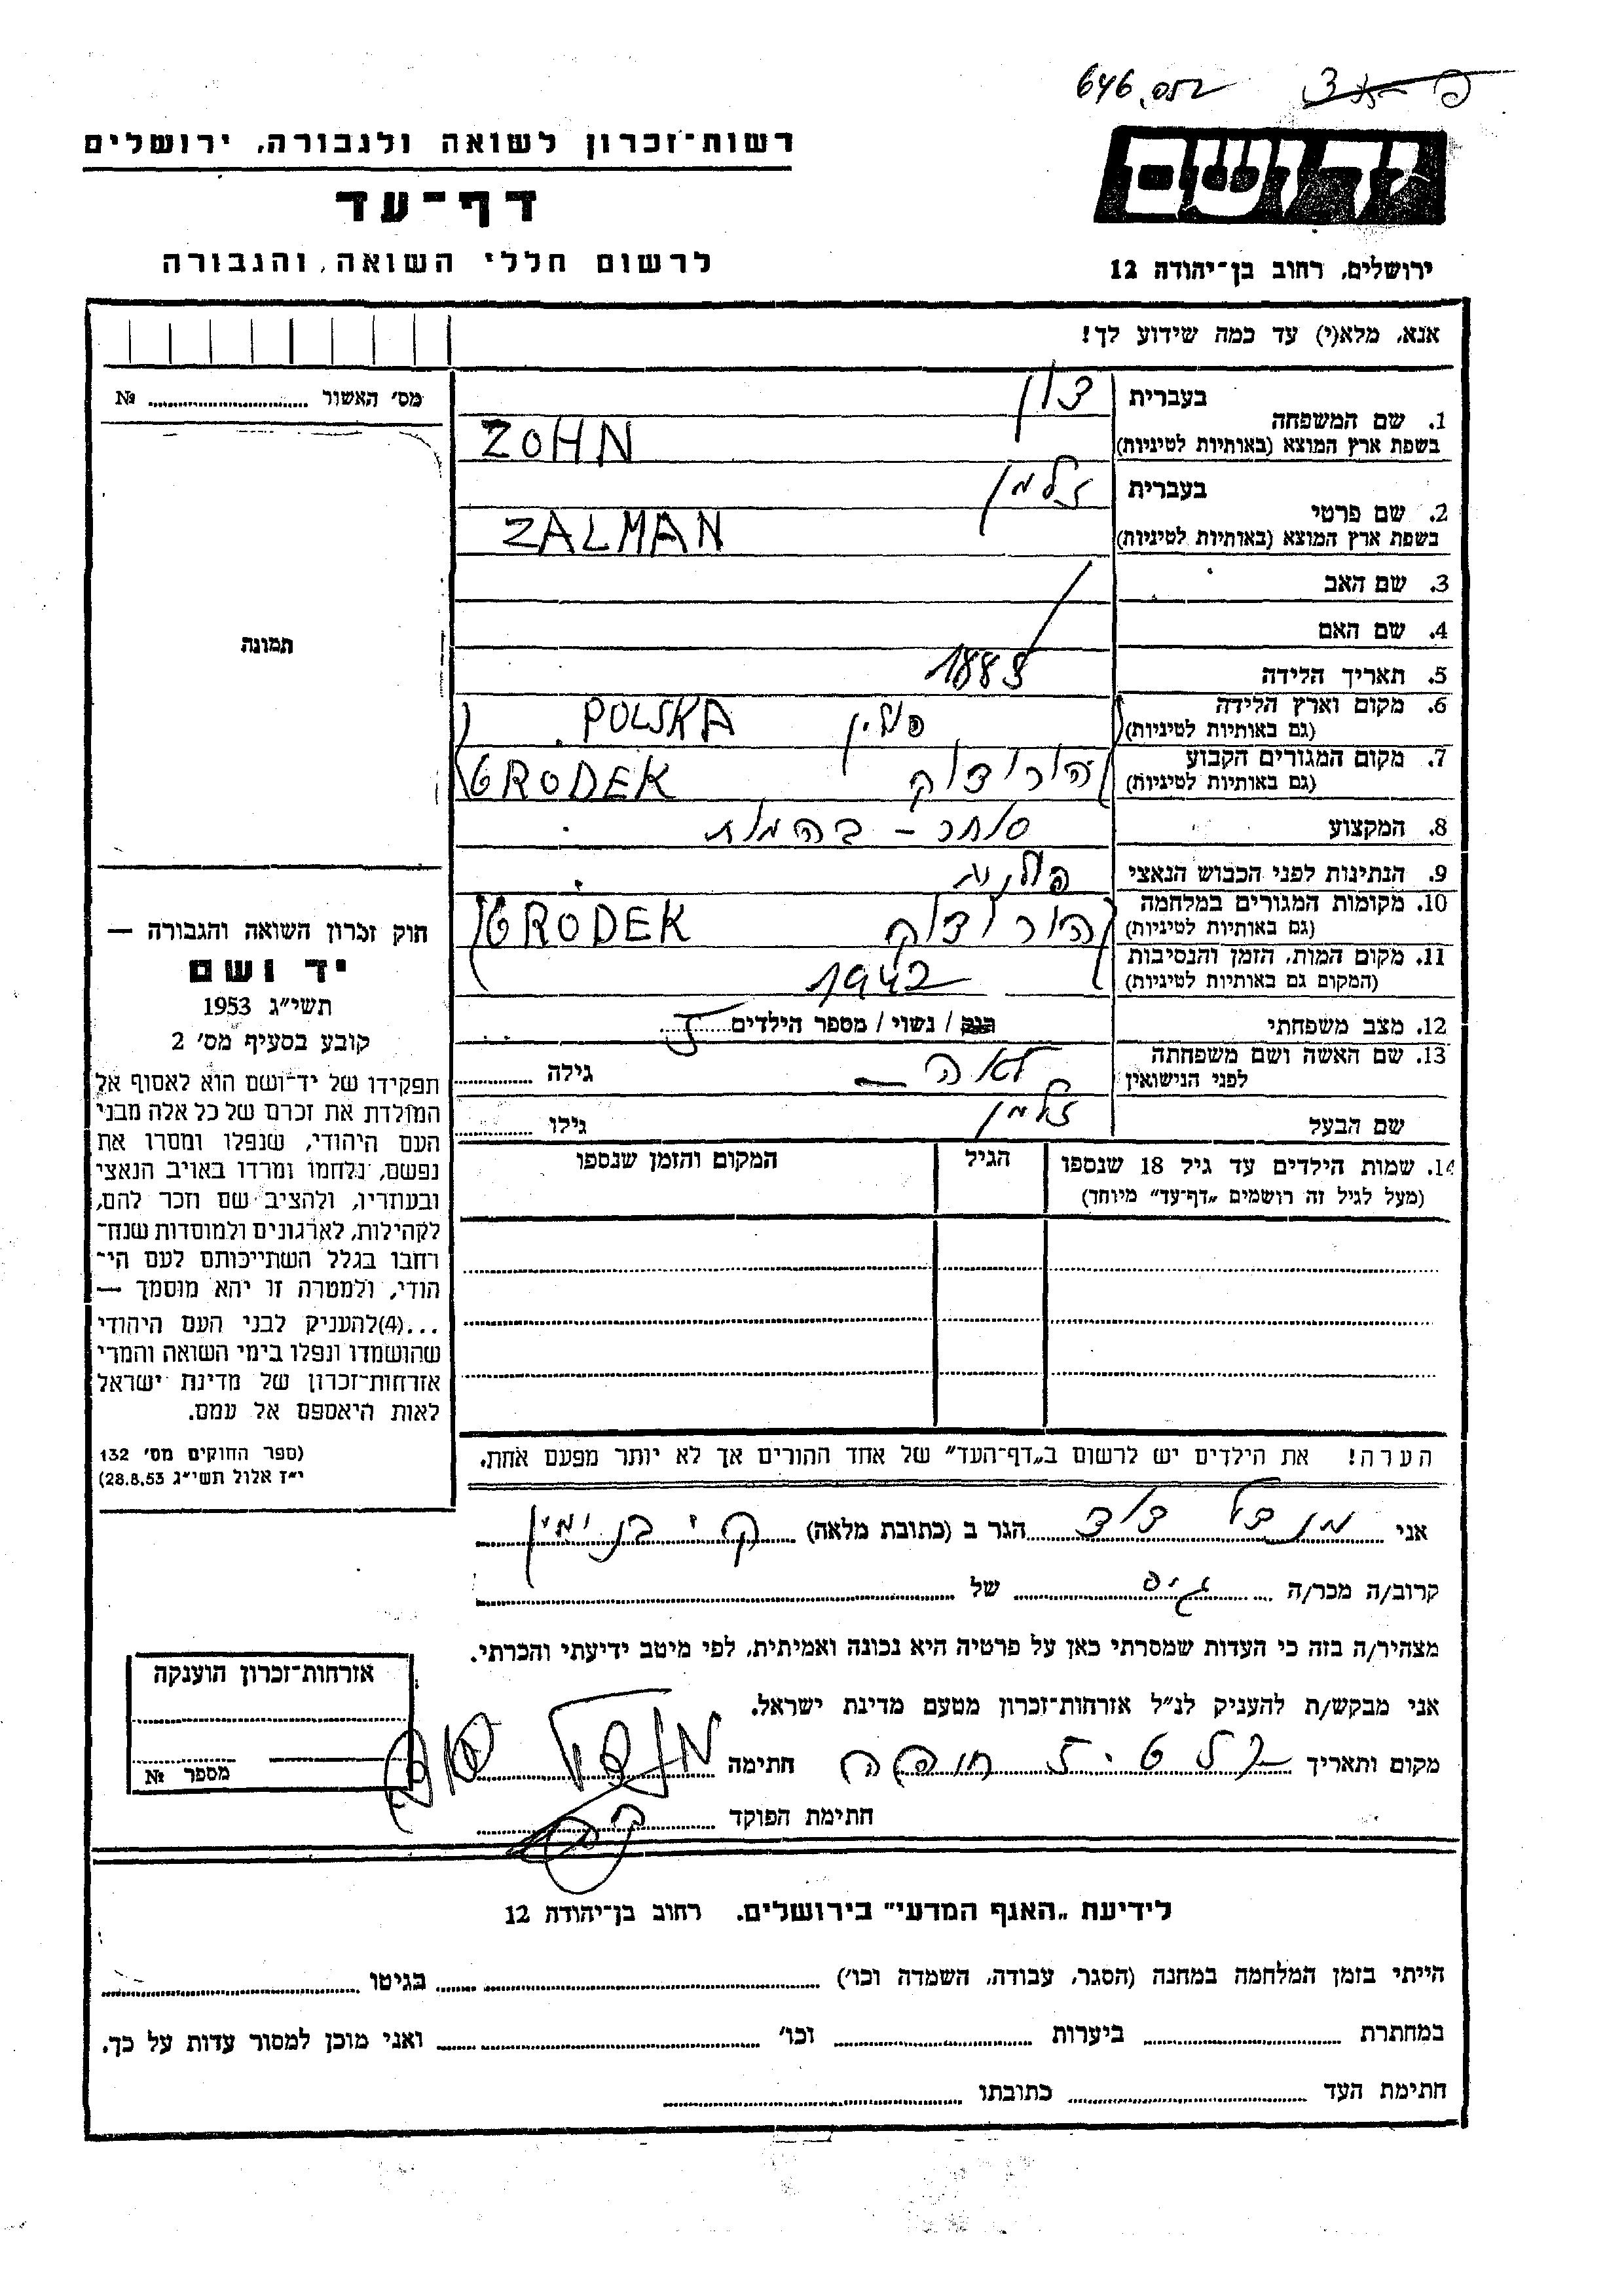 646
ידושם
רשות־זכרון לשואה ולגבורה, ירושלים
דף־עד
לרשום חללי השואה והגבורה
ירושלים, רחוב בן־יהודה 12
אנא, מלא(י) עד כמה שידוע לך!
מס׳ האשור № ........
תמונה
1. שם המשפחה
בעברית צון
בשפת ארץ המוצא (באותיות לטיניות) ZOHN
2. שם פרטי
בעברית זלמן
בשפת ארץ המוצא (באותיות לטיניות) ZALMAN
3. שם האב
4. שם האם
5. תאריך הלידה 1883
6. מקום וארץ הלידה (גם באותיות לטיניות) פולין POLSKA
7. מקום המגורים הקבוע (גם באותיות לטיניות) הורודוק GRODEK
8. המקצוע סוחר - בהמות
9. הנתינות לפני הכבוש הנאצי פולנית
10. מקומות המגורים במלחמה (גם באותיות לטיניות) הורודוק GRODEK
11. מקום המות, הזמן והנסיבות (המקום גם באותיות לטיניות) 1942
12. מצב משפחתי רווק / נשוי / מספר הילדים
13. שם האשה ושם משפחתה לפני הנישואין לאה - גילה
שם הבעל זלמן גילו
14. שמות הילדים עד גיל 18 שנספו (מעל לגיל זה רושמים „דף־עד״ מיוחד) הגיל המקום והזמן שנספו
חוק זכרון השואה והגבורה —
יד ושם
תשי״ג 1953
קובע בסעיף מס׳ 2
תפקידו של יד־ושם הוא לאסוף אל
המולדת את זכרם של כל אלה מבני
העם היהודי, שנפלו ומסרו את
נפשם, נלחמו ומרדו באויב הנאצי
ובעוזריו, ולהציב שם וזכר להם,
לקהילות, לארגונים ולמוסדות שנח־
רחבו בגלל השתייכותם לעם הי־
הודי, ולמטרה זו יהא מוסמך —
...(4)להעניק לבני העם היהודי
שהושמדו ונפלו בימי השואה והמרי
אזרחות־זכרון של מדינת ישראל
לאות היאספם אל עמם.
(ספר החוקים מס׳ 132
י״ז אלול תשי״ג 28.8.53)
הערה! את הילדים יש לרשום ב„דף־העד״ של אחד ההורים אך לא יותר מפעם אחת.
אני מנדל דוד הגר ב (כתובת מלאה) ק. בנימין
קרוב/ה מכר/ה גיס של
מצהיר/ה בזה כי העדות שמסרתי כאן על פרטיה היא נכונה ואמיתית, לפי מיטב ידיעתי והכרתי.
אני מבקש/ת להעניק לנ״ל אזרחות־זכרון מטעם מדינת ישראל.
מקום ותאריך חתימה
חתימת הפוקד
אזרחות־זכרון הוענקה
מספר №
לידיעת „האגף המדעי״ בירושלים. רחוב בן־יהודה 12
הייתי בזמן המלחמה במחנה (הסגר, עבודה, השמדה וכו׳) בגיטו
במחתרת ביערות וכו׳ ואני מוכן למסור עדות על כך.
חתימת העד כתובתו